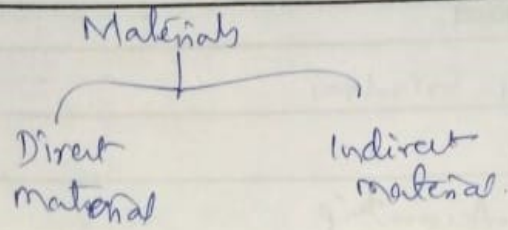 Materials
Direct
material
Indirect
material.